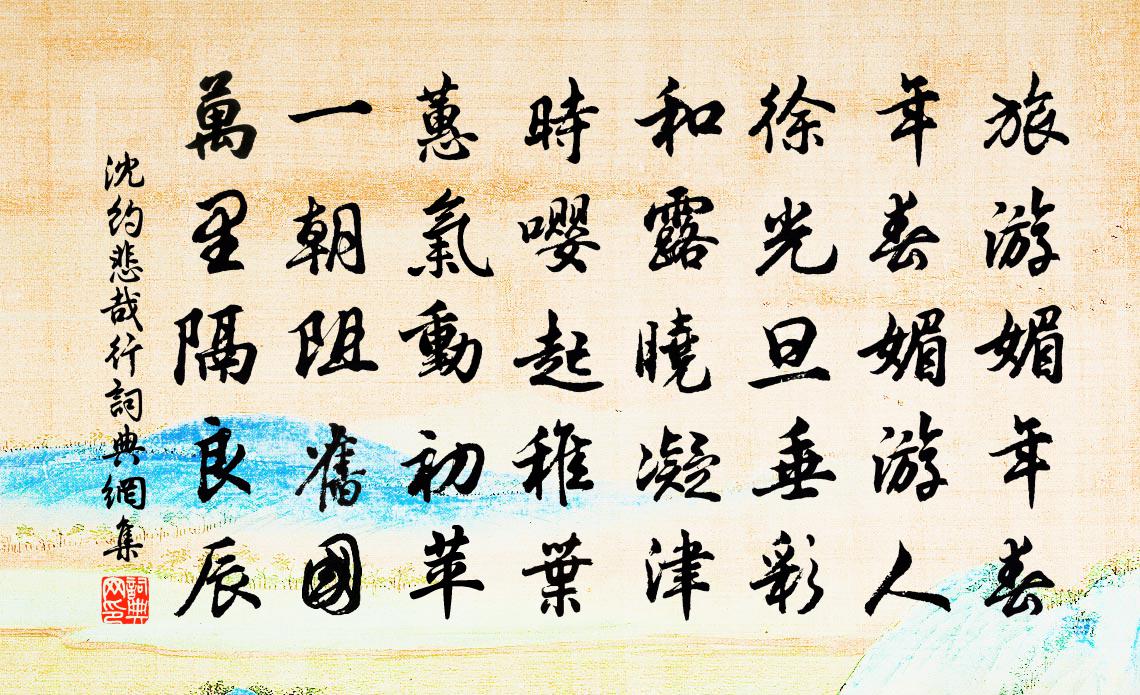 旅游媚年春
年春媚游人
徐光旦垂彩
和露曉凝津
時嚶起稚葉
蕙氣動初苹
一朝阻舊國
萬里隔良辰
沈約悲哉行詞典網集
詞典网印